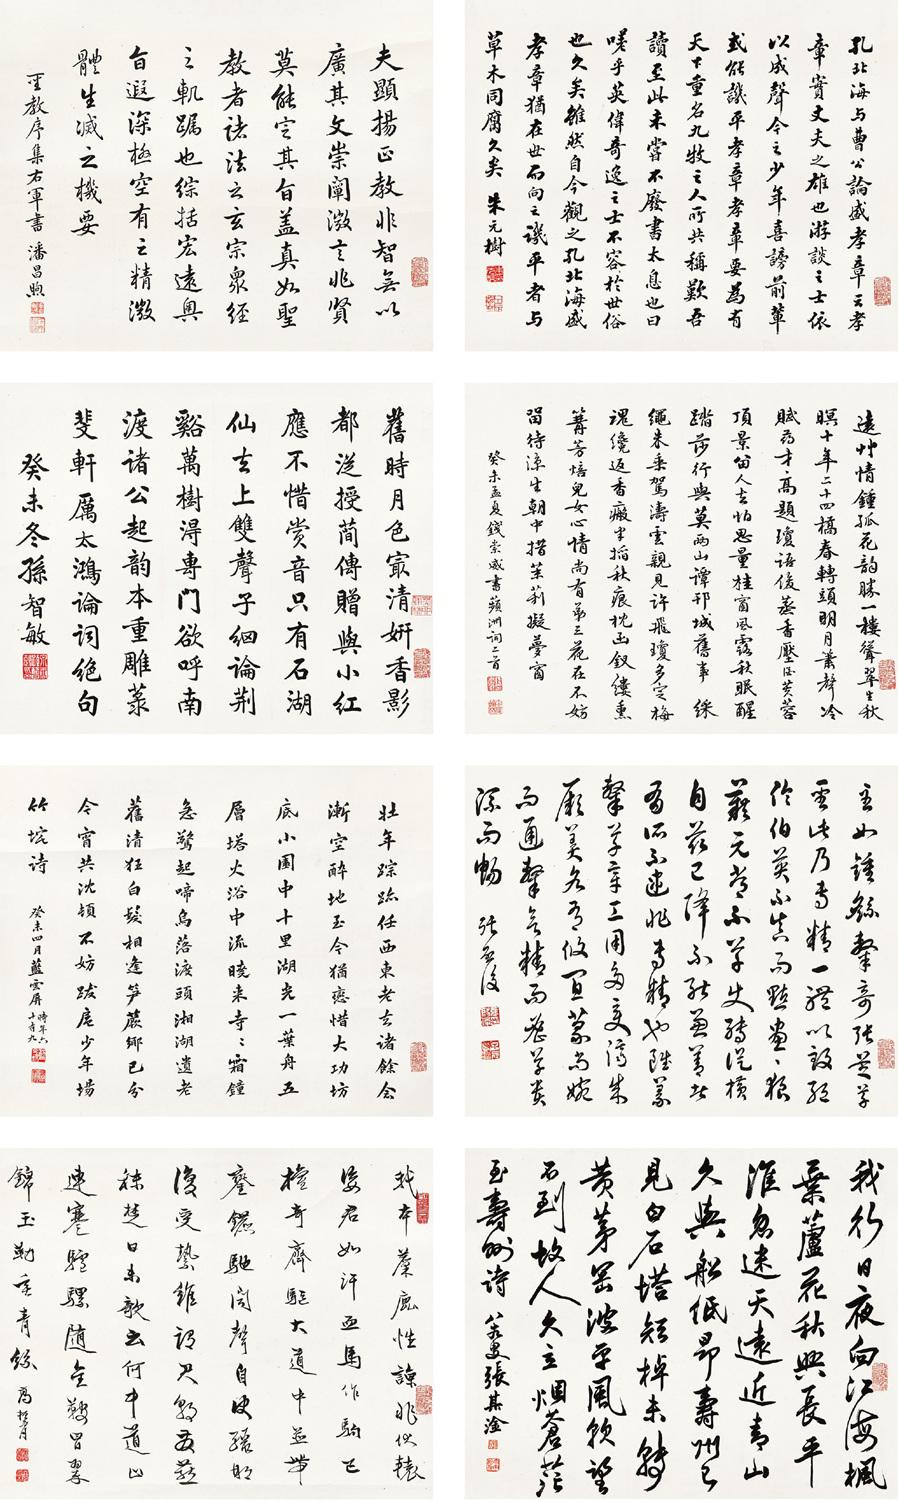 孔北海与曹公論盛孝章云孝
章實丈夫之雄也游談之士依
以成聲今之少年喜謗前輩
或能譏平孝章孝章要為有
天下重名九牧之人所共稱歎吾
讀至此未嘗不廢書太息也曰
嗟乎英偉奇逸之士不容於世俗
也久矣雖然自今觀之孔北海盛
孝章猶在世而向之譏平者与
草木同腐久矣 朱元樹
夫顯揚正教非智無以
廣其文崇闡微言非賢
莫能定其旨蓋真如聖
教者諸法之玄宗眾經
之軌躅也綜括宏遠奧
旨遐深極空有之精微
體生滅之機要
聖教序集右軍書 潘昌煦
遠草情鍾孤花韵勝一樓聳翠生秋
暝十年二十四橋春轉頭明月簫聲冷
賦葯才高題瓊語俊蒸香壓酒芙蓉
頂景留人去怕思量桂窗風露秋眠醒
踏莎行與莫兩山譚邗城舊事 綵
繩朱乘駕濤雲親見許飛瓊多定梅
魂纔返香瘢半掐秋痕枕函釵縷熏
篝芳焙兒女心情尚有第三花在不妨
留待涼生朝中措茉莉擬夢窗
癸未孟夏錢崇威書蘋洲詞二首
舊時月色最清妍香影
都從授簡傳贈與小紅
應不惜賞音只有石湖
仙去上雙聲子細論荊
谿萬樹得專門欲呼南
渡諸公起韵本重雕菉
斐軒厲太鴻論詞絕句
癸未冬孫智敏
至如鍾繇隸奇張芝草
聖此乃專精一體以致絕
倫伯英不真而點畫狼
藉元常不草使轉縱橫
自茲已降不能兼善者
有所不逮非專精也雖篆
隸草章工用多變濟成
厥美各有攸宜篆尚婉
而通隸欲精而密草貴
流而暢 張啟後
壯年踪跡任西東老去諸餘念
漸空醉地至今猶戀惜大功坊
底小園中十里湖光一葉舟五
層塔火浴中流曉來寺〻霜鐘
急驚起啼烏落渡頭湘湖遺老
舊清狂白髮相逢笋蕨鄉已分
今宵共沈頓不妨跋扈少年場
竹垞詩 癸未四月藍雲屏時年六十有九
我行日夜向江海楓
葉蘆花秋興長平
淮忽迷天遠近青山
久與船低昂壽州已
見白石塔短棹未轉
黃茅岡波平風軟望
不到故人久立烟蒼茫
至壽州詩 張其淦
我本麋鹿性諒非伏轅
姿君如汗血馬作駒已
權奇齊驅大道中並帶
鑾鑣馳聞聲自決驟那
復受縶維謂君朝發燕
秣楚日未欹云何中道止
連蹇驢騾隨金鞍冒翠
錦玉勒垂青絲